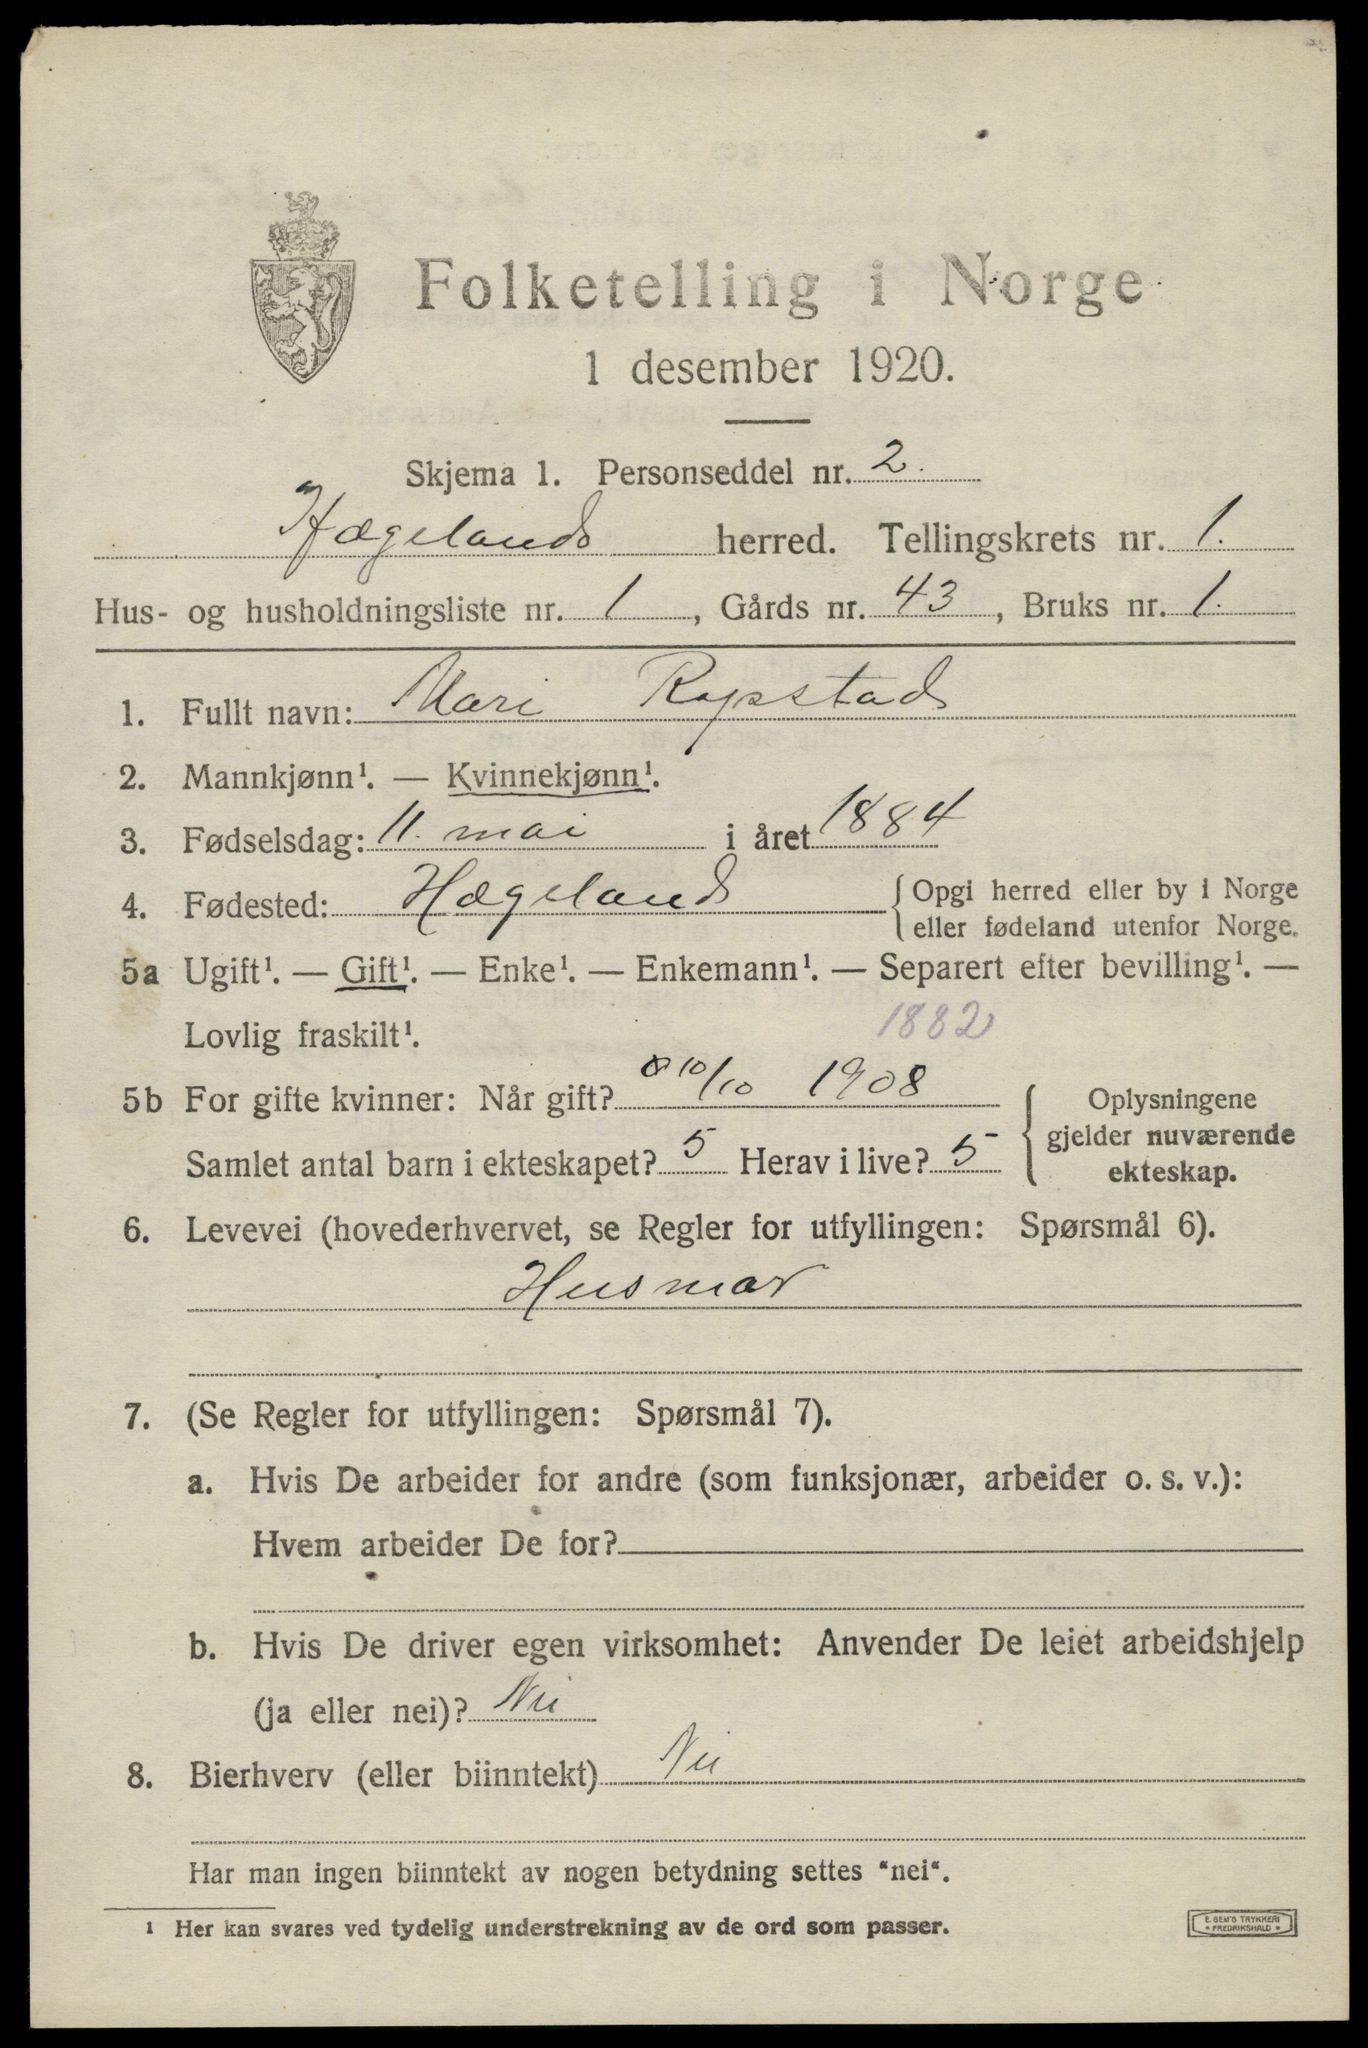 Folketelling i Norge
1 desember 1920.
Skjema 1. Personseddel nr. 2.
Hægelands herred. Tellingskrets nr. 1.
Hus- og husholdningsliste nr. 1, Gårds nr. 43, Bruks nr. 1.
1. Fullt navn: Mari Rypstad
2. Mannkjønn¹. — Kvinnekjønn¹.
3. Fødselsdag: 11. mai i året 1884
4. Fødested: Hægeland { Opgi herred eller by i Norge
eller fødeland utenfor Norge.
5a Ugift¹. — Gift¹. — Enke¹. — Enkemann¹. — Separert efter bevilling¹. —
Lovlig fraskilt¹. 1882
5b For gifte kvinner: Når gift? 10/10 1908 { Oplysningene
gjelder nuværende
ekteskap.
Samlet antal barn i ekteskapet? 5 Herav i live? 5
6. Levevei (hovederhvervet, se Regler for utfyllingen: Spørsmål 6).
Husmor
7. (Se Regler for utfyllingen: Spørsmål 7).
a. Hvis De arbeider for andre (som funksjonær, arbeider o. s. v.):
Hvem arbeider De for?
b. Hvis De driver egen virksomhet: Anvender De leiet arbeidshjelp
(ja eller nei)? Nei
8. Bierhverv (eller biinntekt) Nei
Har man ingen biinntekt av nogen betydning settes “nei“.
¹ Her kan svares ved tydelig understrekning av de ord som passer.
E. SEM'S TRYKKERI
* FREDRIKSHALD *